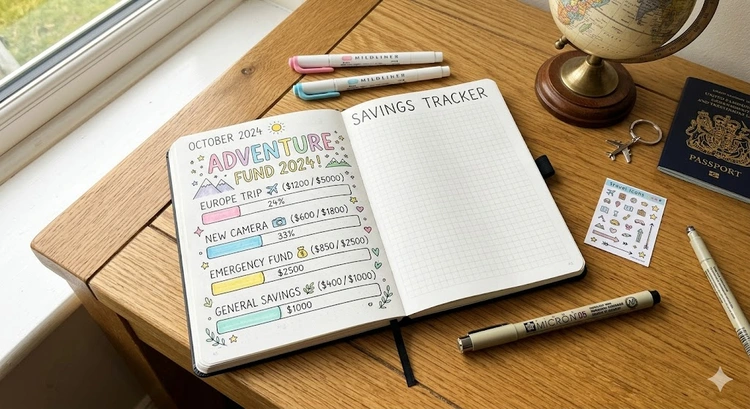 MILDLINER
MILDLINER
OCTOBER 2024
ADVENTURE
FUND 2024!
EUROPE TRIP ($1200/$5000)
24%
NEW CAMERA ($600/$1800)
33%
EMERGENCY FUND ($850/$2500)
$2500
GENERAL SAVINGS ($400/$1000)
$1000
SAVINGS TRACKER
PASSPORT
Travel icons
MICRON 05